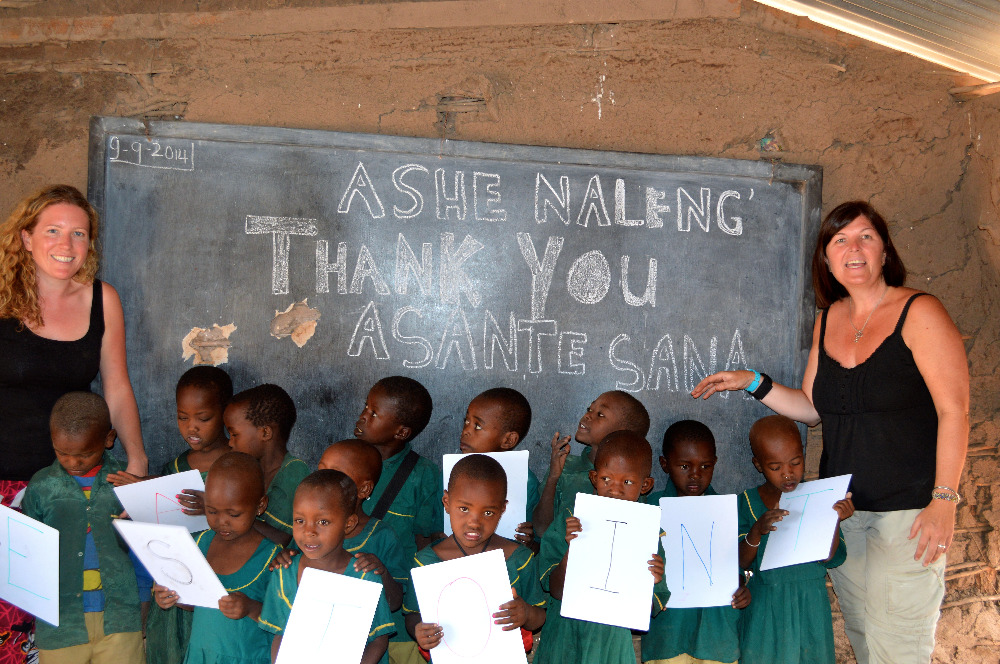 9-9-2014
ASHE NALENG'
THANK YOU
ASANTE SANA
E
S
O
I
N
T